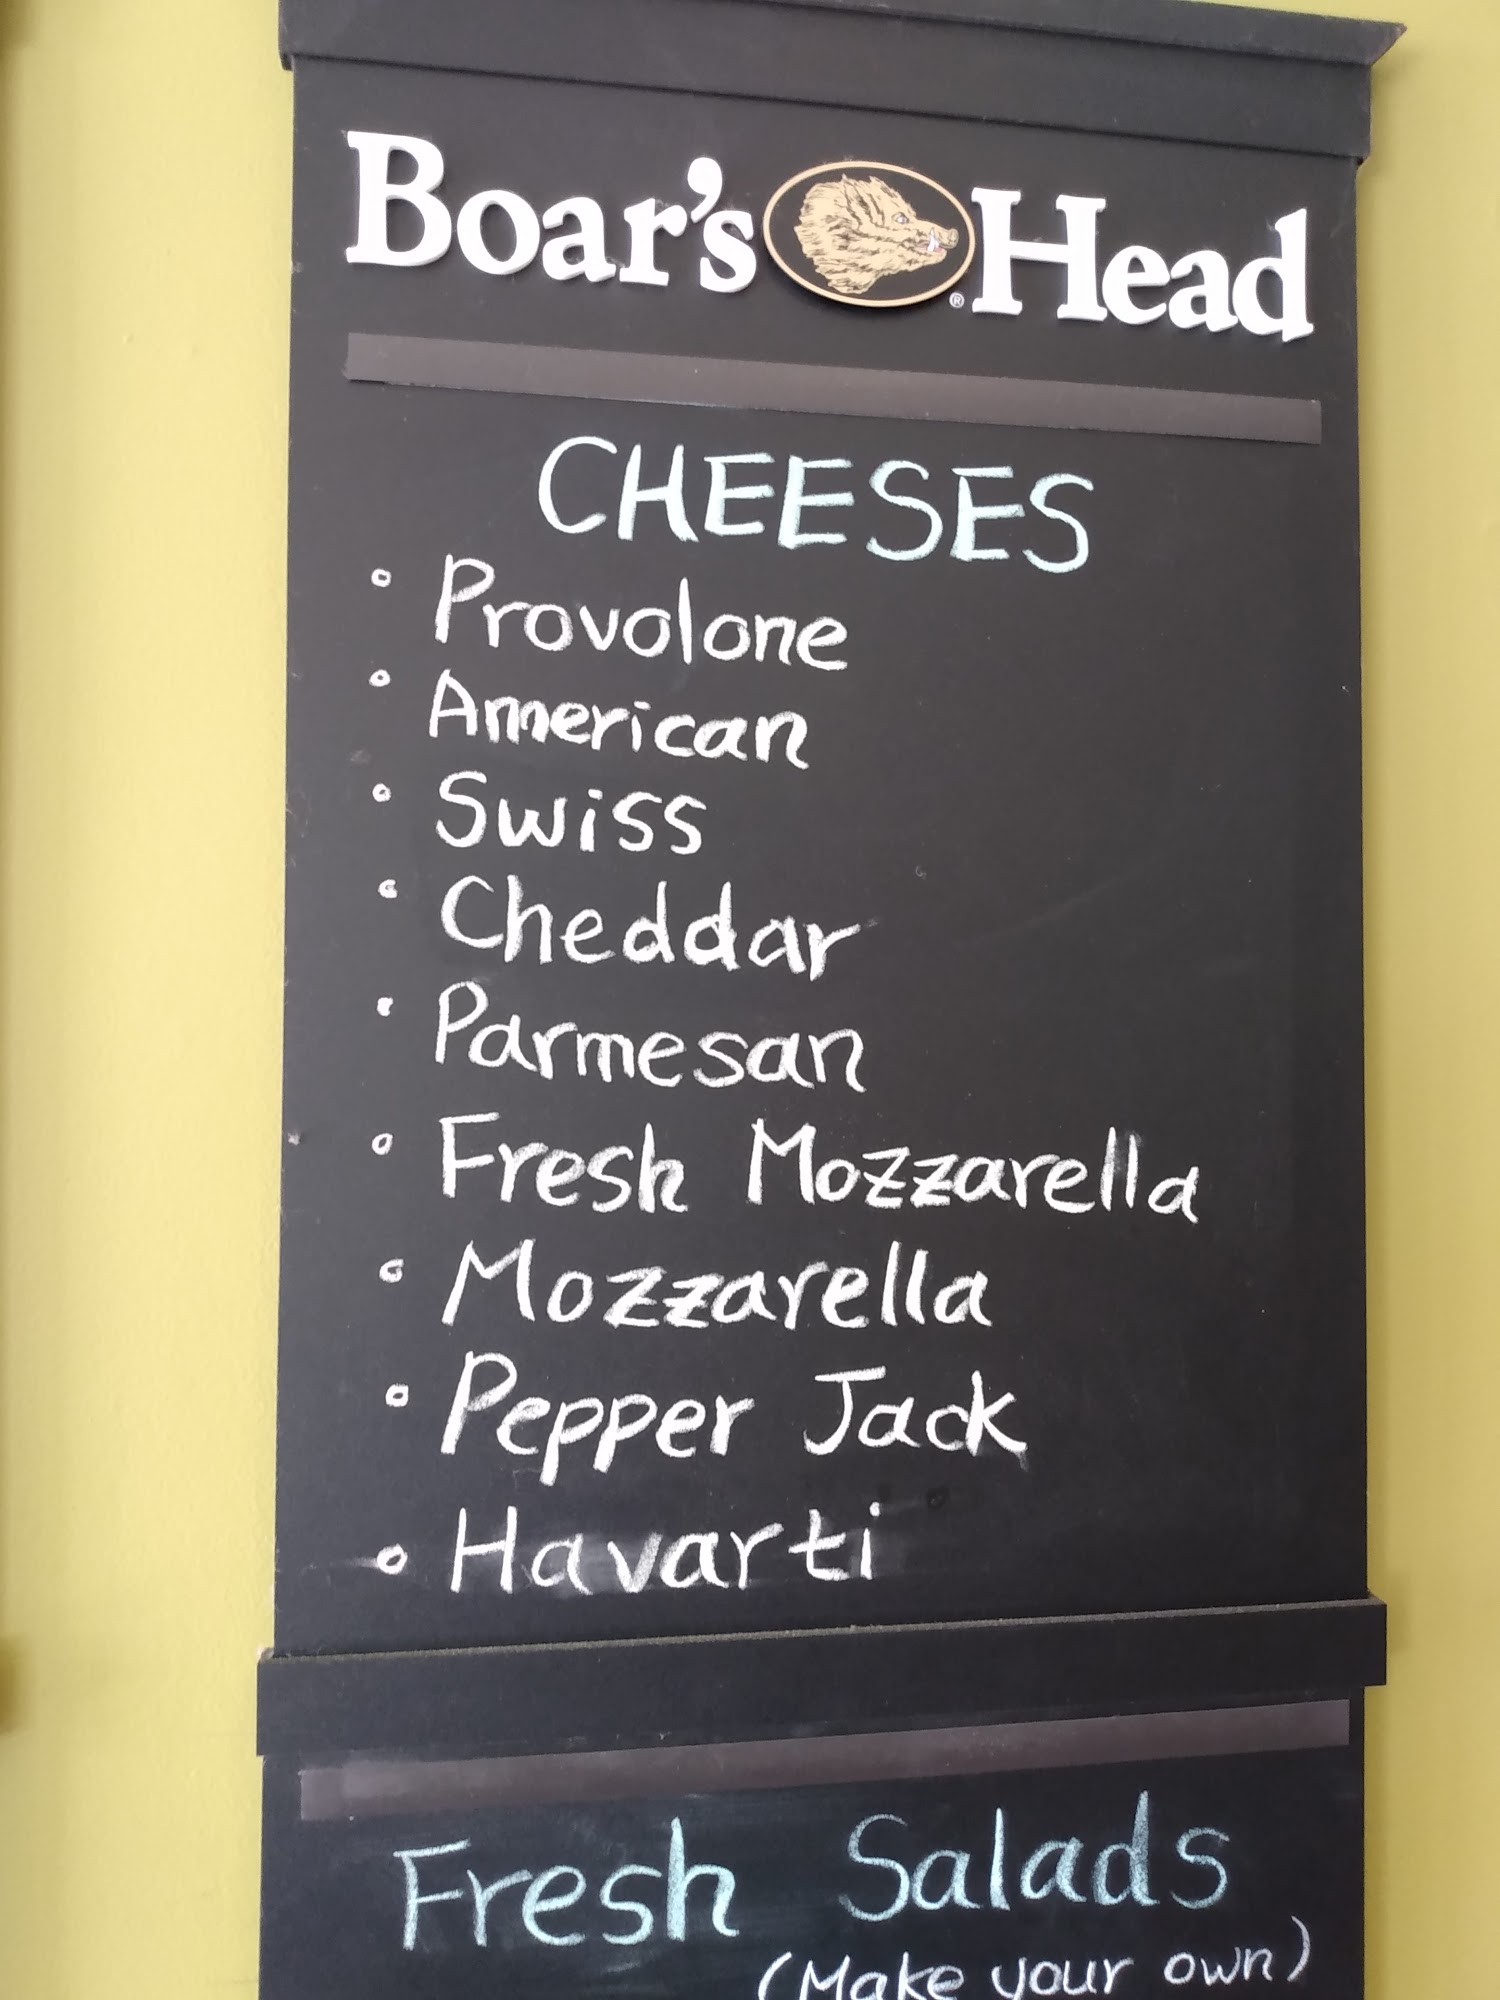 Boar's Head
CHEESES
° Provolone
° American
° Swiss
° Cheddar
° Parmesan
° Fresh Mozzarella
° Mozzarella
° Pepper Jack
° Havarti
Fresh Salads
(Make your own)